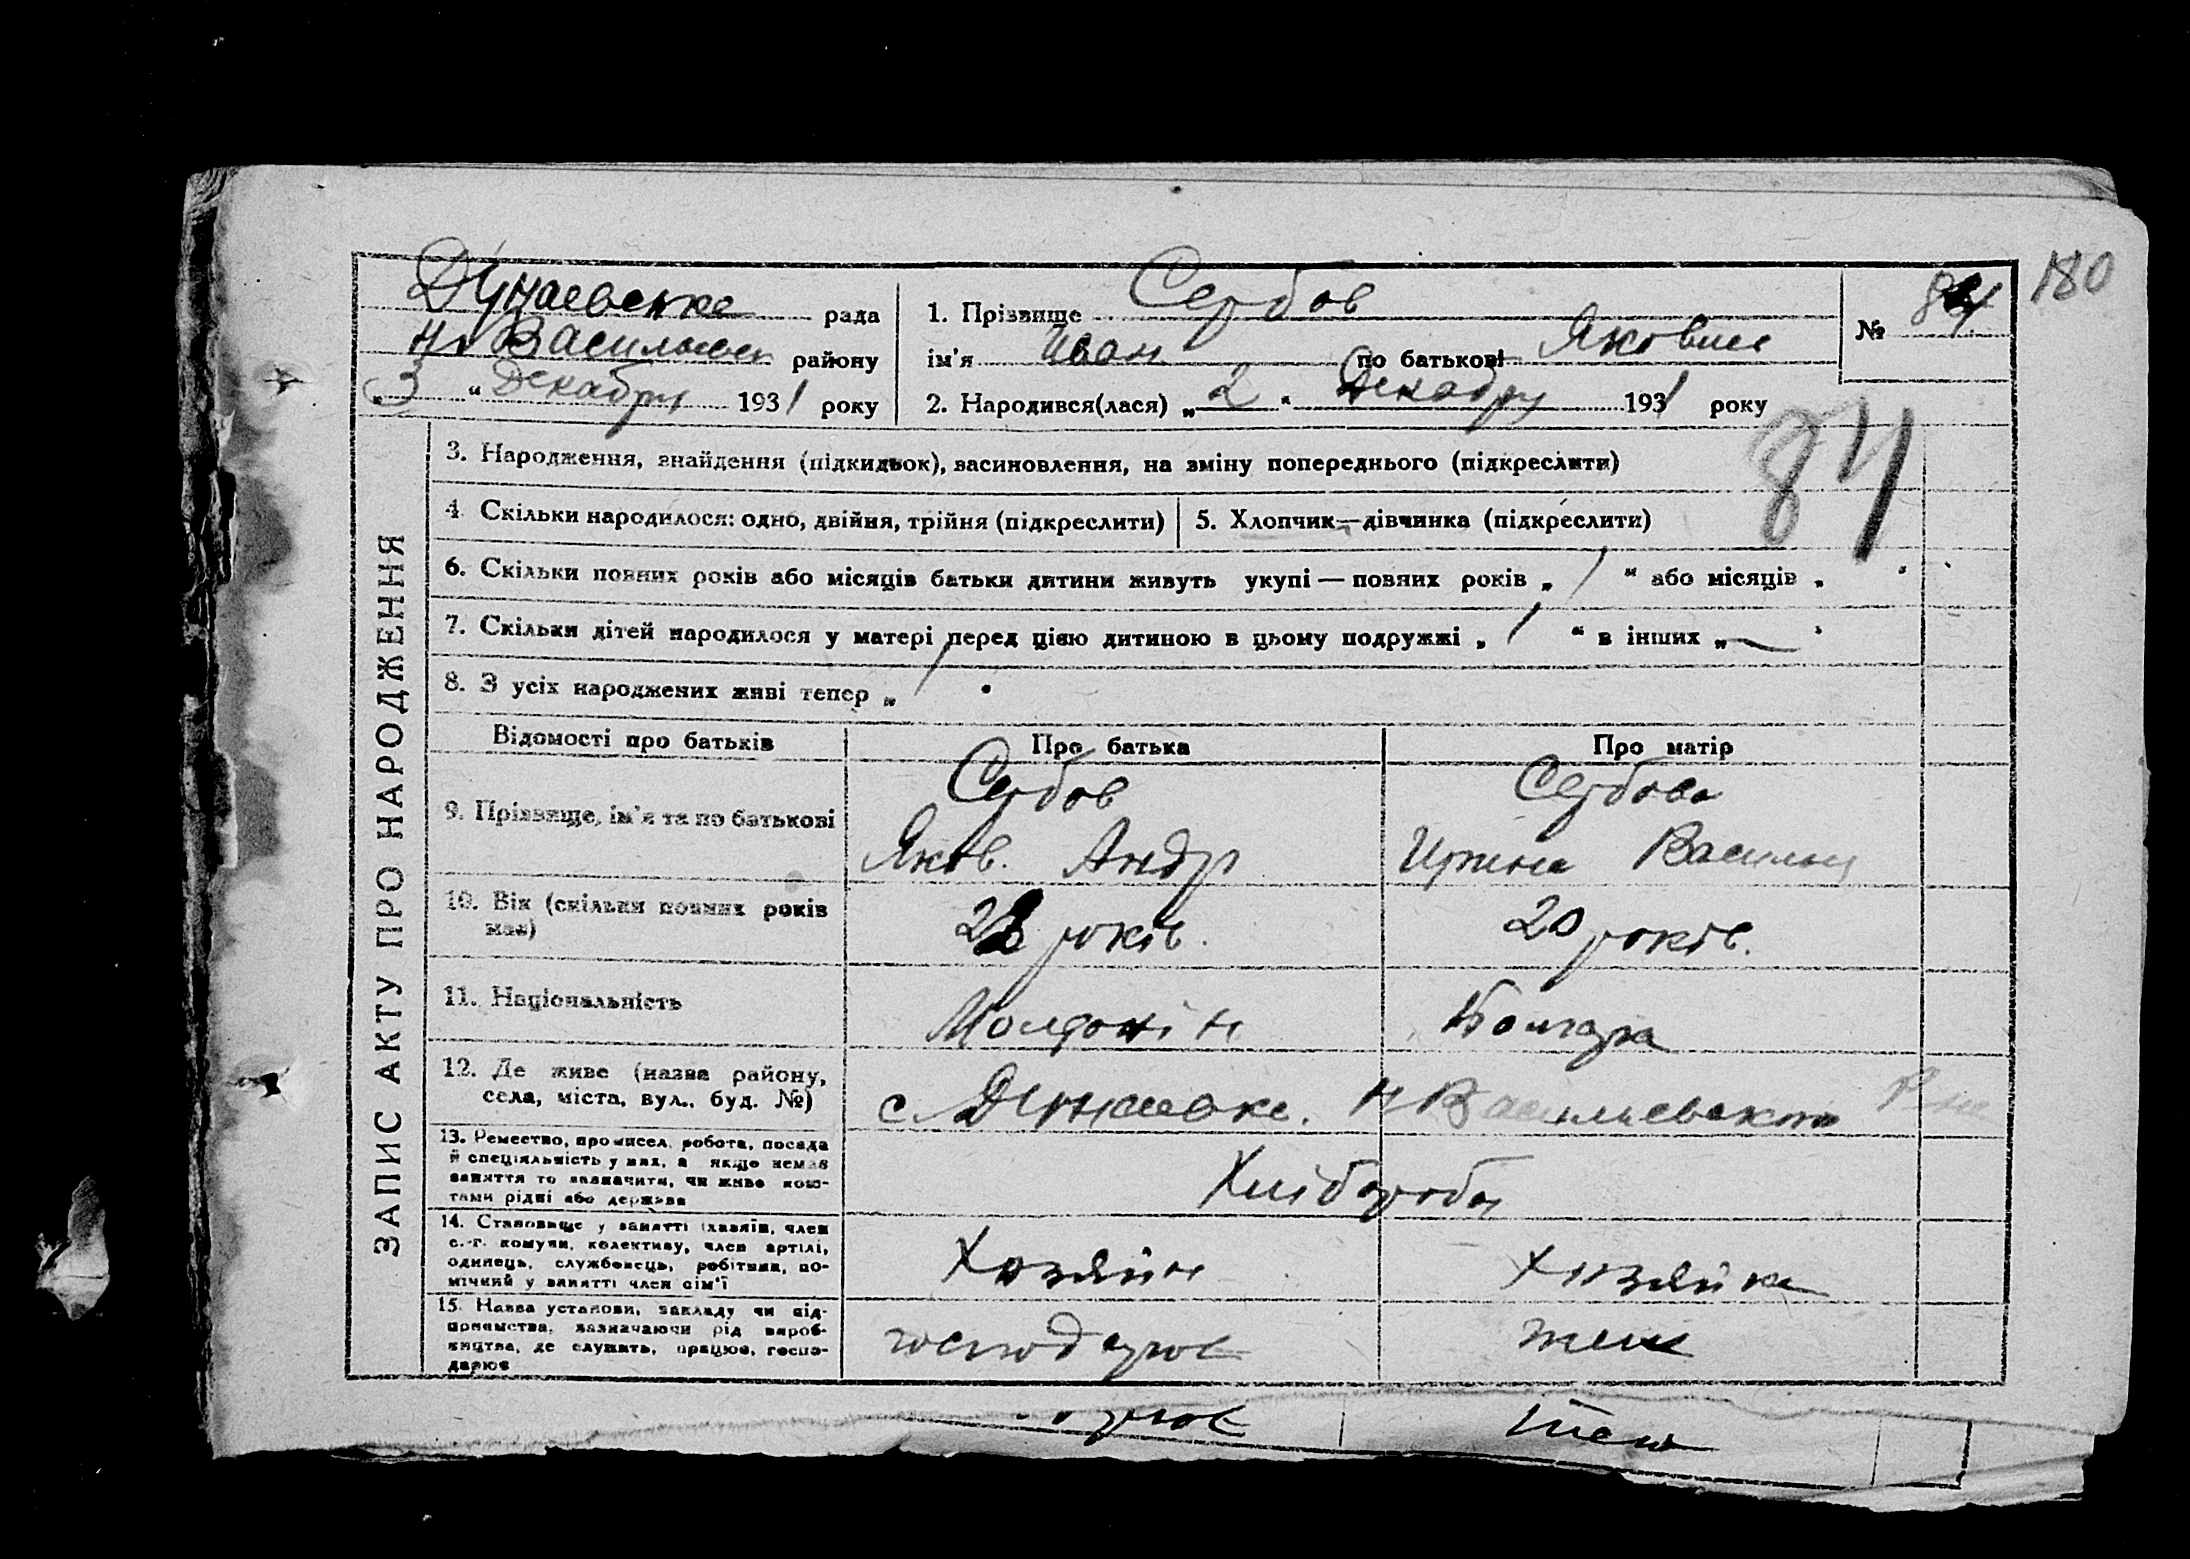 180
Дунаевська рада
Н. Васильев району
"3" Декабря 1931 року
1. Прізвище Сербов
ім'я Иван по батькові Яковлев
2. Народився(лася) „2" Декабря 1931 року
№ 84
84
ЗАПИС АКТУ ПРО НАРОДЖЕННЯ
3. Народження, знайдення (підкидьок), васиновлення, на зміну попереднього (підкреслити)
4. Скільки народилося: одно, двійня, трійня (підкреслити)
5. Хлопчик—дівчинка (підкреслити)
6. Скільки повних років або місяців батьки дитини живуть укупі — повних років „1" або місяців „ "
7. Скільки дітей народилося у матері перед цією дитиною в цьому подружжі „1" в інших „—"
8. З усіх народжених живі тепер „1"
Відомості про батьків
Про батька
Про матір
9. Прізвище, ім'я та по батькові
Сербов
Яков. Андр
Сербова
Ирина Васильев
10. Вік (скільки повних років має)
років.
20 років.
11. Національність
Молдонін
Болгарка
12. Де живе (назва району,
села, міста, вул., буд. №)
с Дунаевке. Н Васильевского Р-на
13. Ремество, промисел, робота, посада
й спеціяльність у них, а якщо немає
заняття то зазначити, чи живе кош-
тами рідні або держава
Хлібороби
14. Становище у занятті (хазяїн, член
с.-г. комуни, колективу, член артілі,
одинець, службовець, робітник, по-
мічний у занятті член сім'ї
Хозяйин
Хозяйка
15. Назва установи, закладу чи під-
приємства, зазначаючи рід вироб-
ництва, де служить, працює, госпо-
дарює
господарює